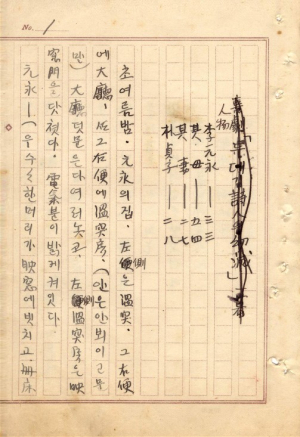 No. 1
人物
李元永——三三
其母——五四
其妻——二七
朴貞子——二八
초여름밤. 元永의집. 左側은溫突. 그右便
에大廳, 또그右便에溫突房. (안은안뵈이고문
만) 大廳덧문은다여러노코. 左側溫突房은映
窓門으로닷첫다. 電燈불이밝게켜잇다.
元永—(우수수한머리가映窓에빗치고, 冊床